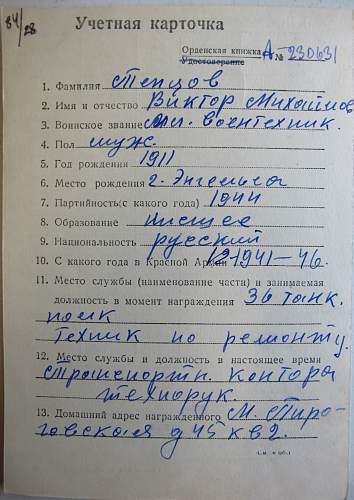 84/28
Учетная карточка
Орденская книжка А № 230631
Удостоверение
1. Фамилия Тепцов
2. Имя и отчество Виктор Михайлов
3. Воинское звание Мл. воентехник.
4. Пол муж.
5. Год рождения 1911
6. Место рождения г. Энгельса
7. Партийность (с какого года) 1944
8. Образование низшее
9. Национальность русский
10. С какого года в Красной Армии 1941–46.
11. Место службы (наименование части) и занимаемая
должность в момент награждения 36 танк.
полк
техник по ремонту.
12. Место службы и должность в настоящее время
Транспортн. контора
технорук.
13. Домашний адрес награжденного М. Пиро-
говская д 45 кв 2.